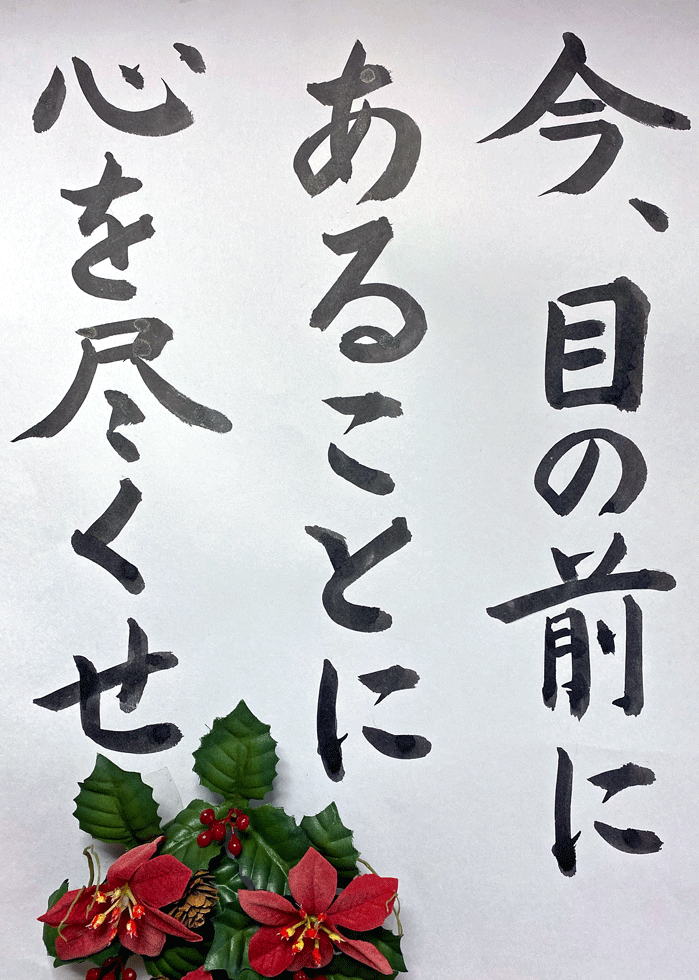 今、目の前に
あることに
心を尽くせ